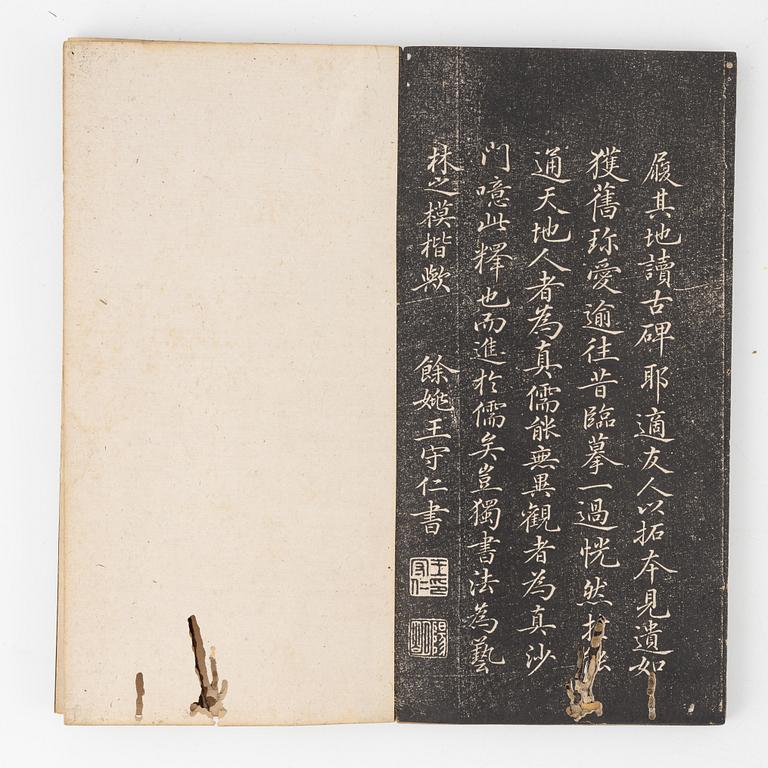 履其地讀古碑耶適友人以拓本見遺如
獲舊珎愛逾往昔臨摹一過恍然
通天地人者為真儒能無異觀者為真沙
門噫此釋也而進於儒矣豈獨書法為藝
林之模楷歟　餘姚王守仁書
王印守仁
陽明